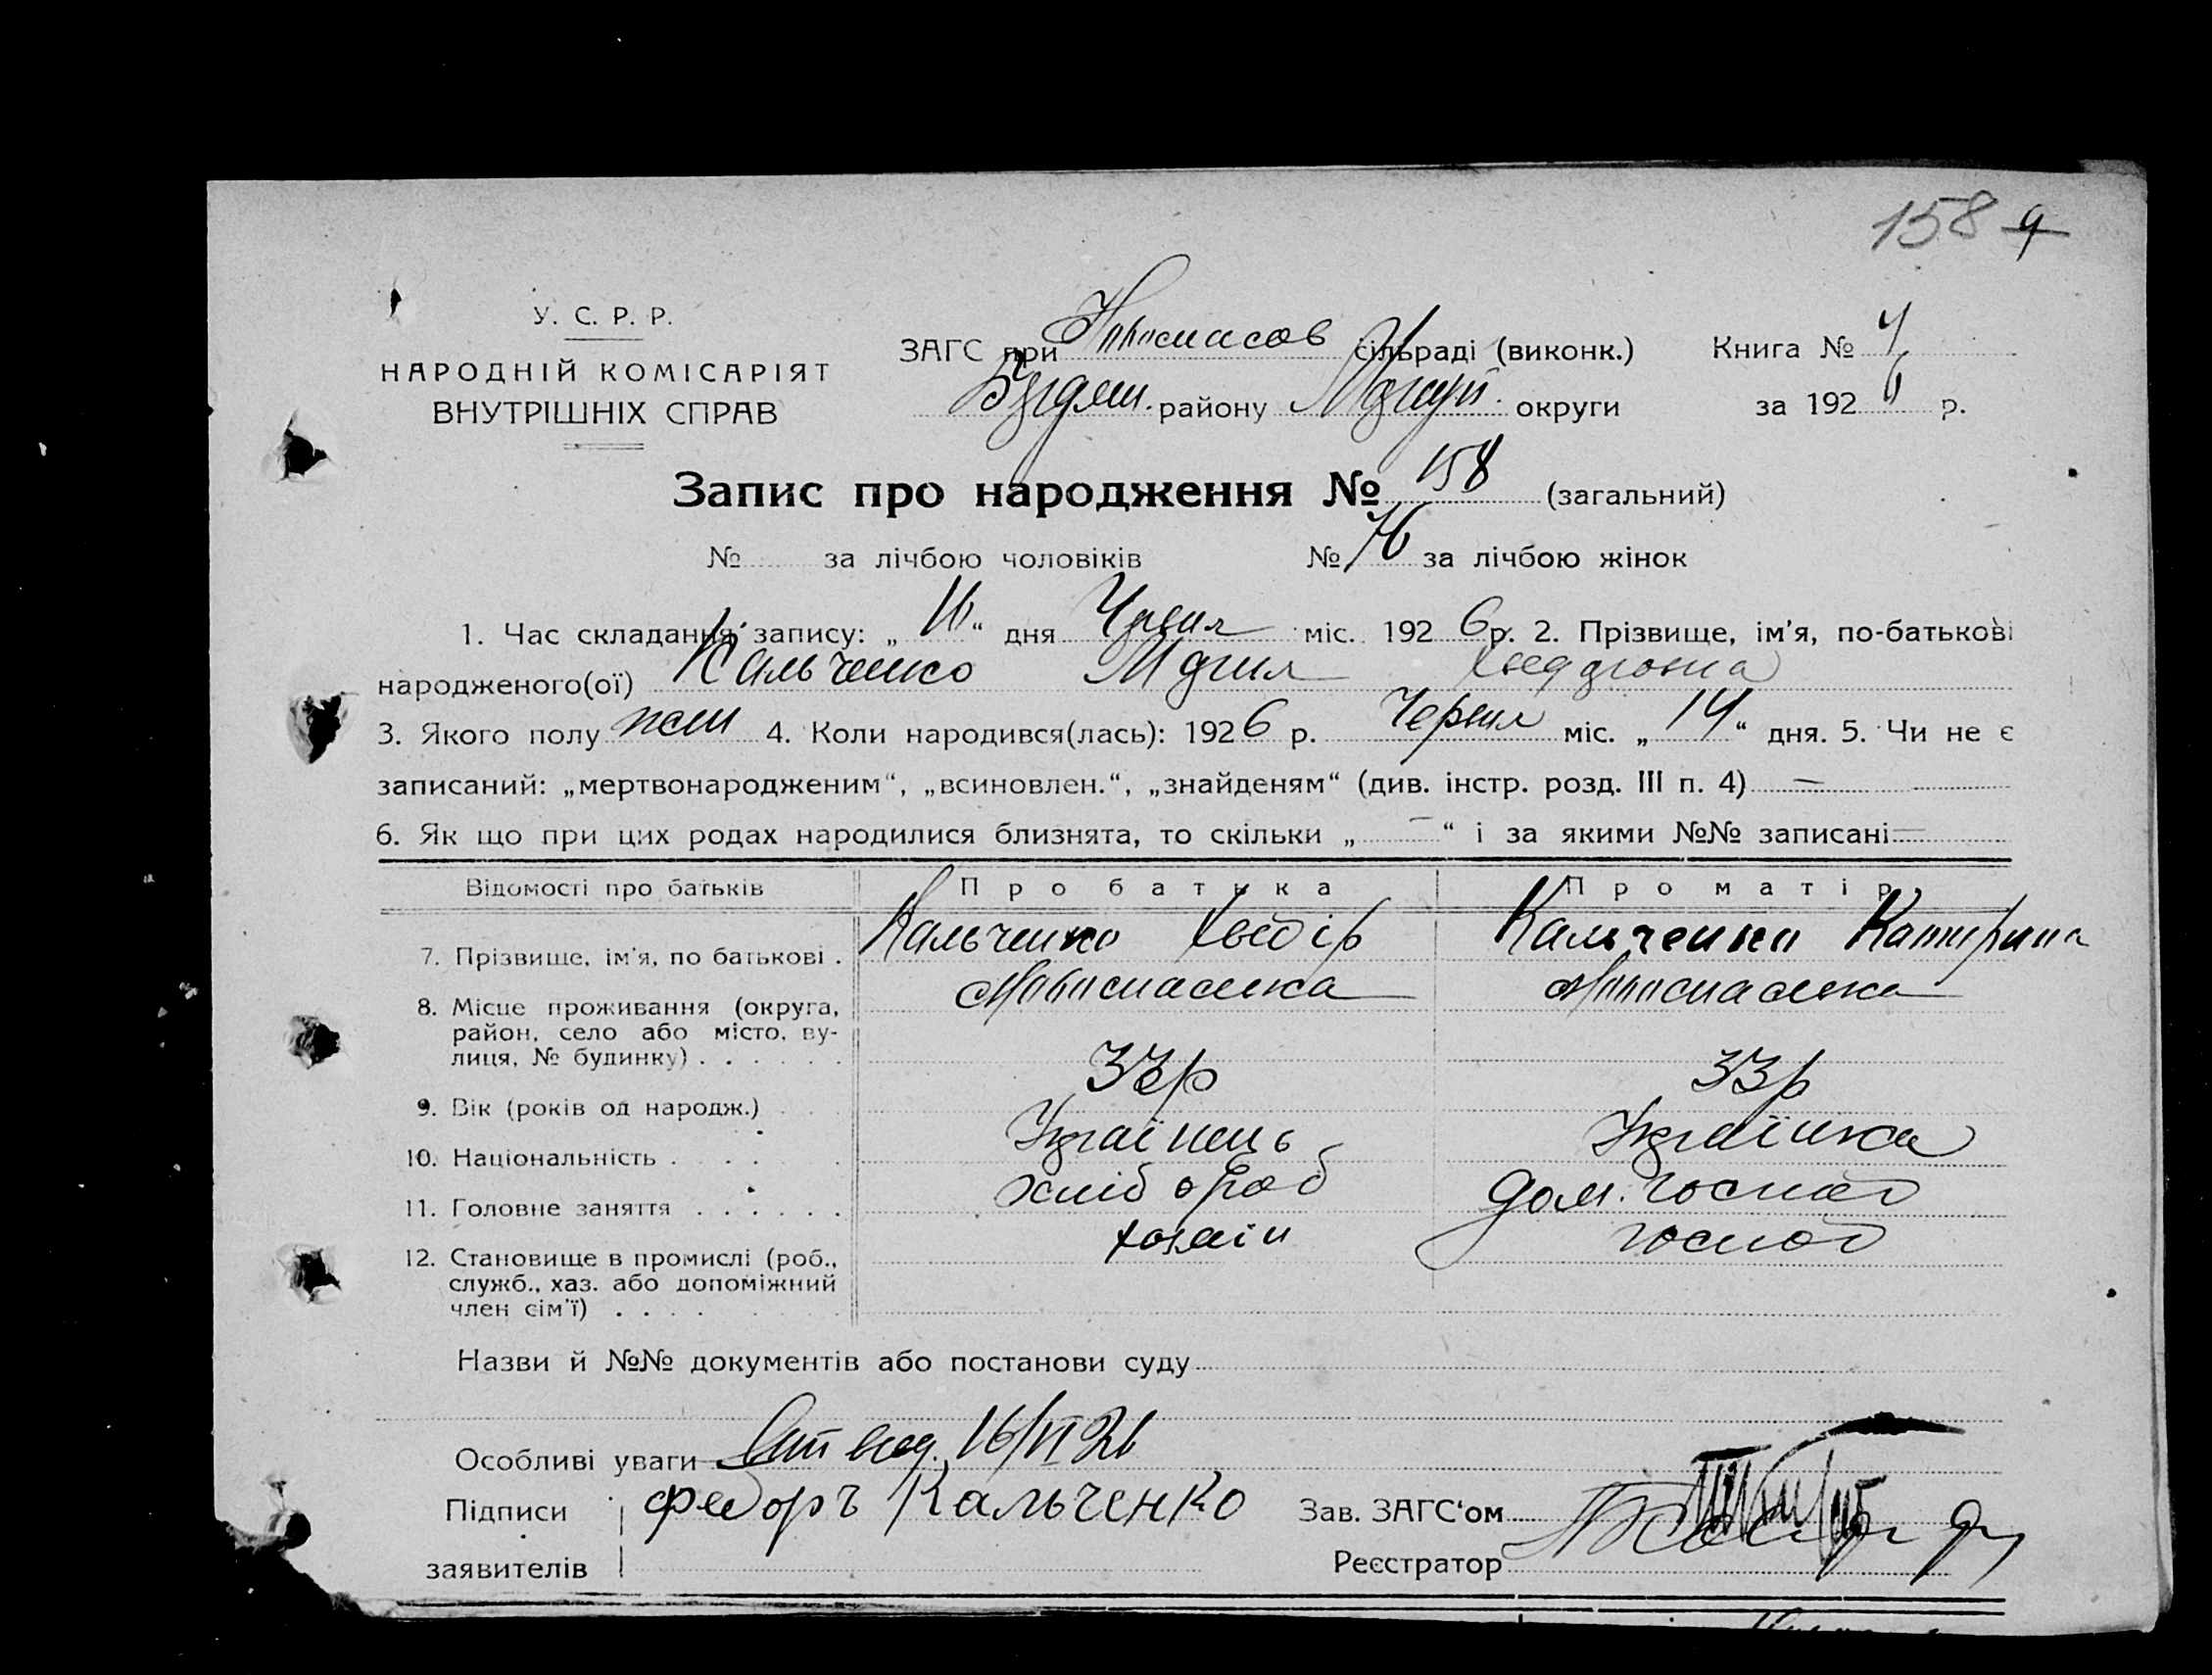 158 4
У. С. Р. Р.
НАРОДНІЙ КОМІСАРІЯТ
ВНУТРІШНІХ СПРАВ
ЗАГС при Новоспасов сільраді (виконк.) Книга № 4
району округи за 1926 р.
Запис про народження № 158 (загальний)
№ за лічбою чоловіків № 76 за лічбою жінок
1. Час складання запису: „16“ дня Червня міс. 1926 р. 2. Прізвище, ім'я, по-батькові
народженого(ої) Кальченко Марія
3. Якого полу жін 4. Коли народився(лась): 1926 р. Червня міс. „14“ дня. 5. Чи не є
записаний: „мертвонародженим“, „всиновлен.“, „знайденям“ (див. інстр. розд. III п. 4) —
6. Як що при цих родах народилися близнята, то скільки „—“ і за якими №№ записані —
Відомості про батьків Про батька Про матір
7. Прізвище, ім'я, по батькові . Кальченко Хведір Кальченко Катерина
8. Місце проживання (округа, Новоспаська Новоспаська
район, село або місто, ву-
лиця, № будинку) . . . . . .
9. Вік (років од народж.) 33р
10. Національність . . . . Українець Українка
11. Головне заняття . . . . . . хлібороб дом. госпód
12. Становище в промислі (роб., хазяїн господ
служб., хаз. або допоміжний
член сім'ї) . . . .
Назви й №№ документів або постанови суду
Особливі уваги 16/VI 26
Підписи Федоръ Кальченко Зав. ЗАГС‘ом
заявителів Реєстратор